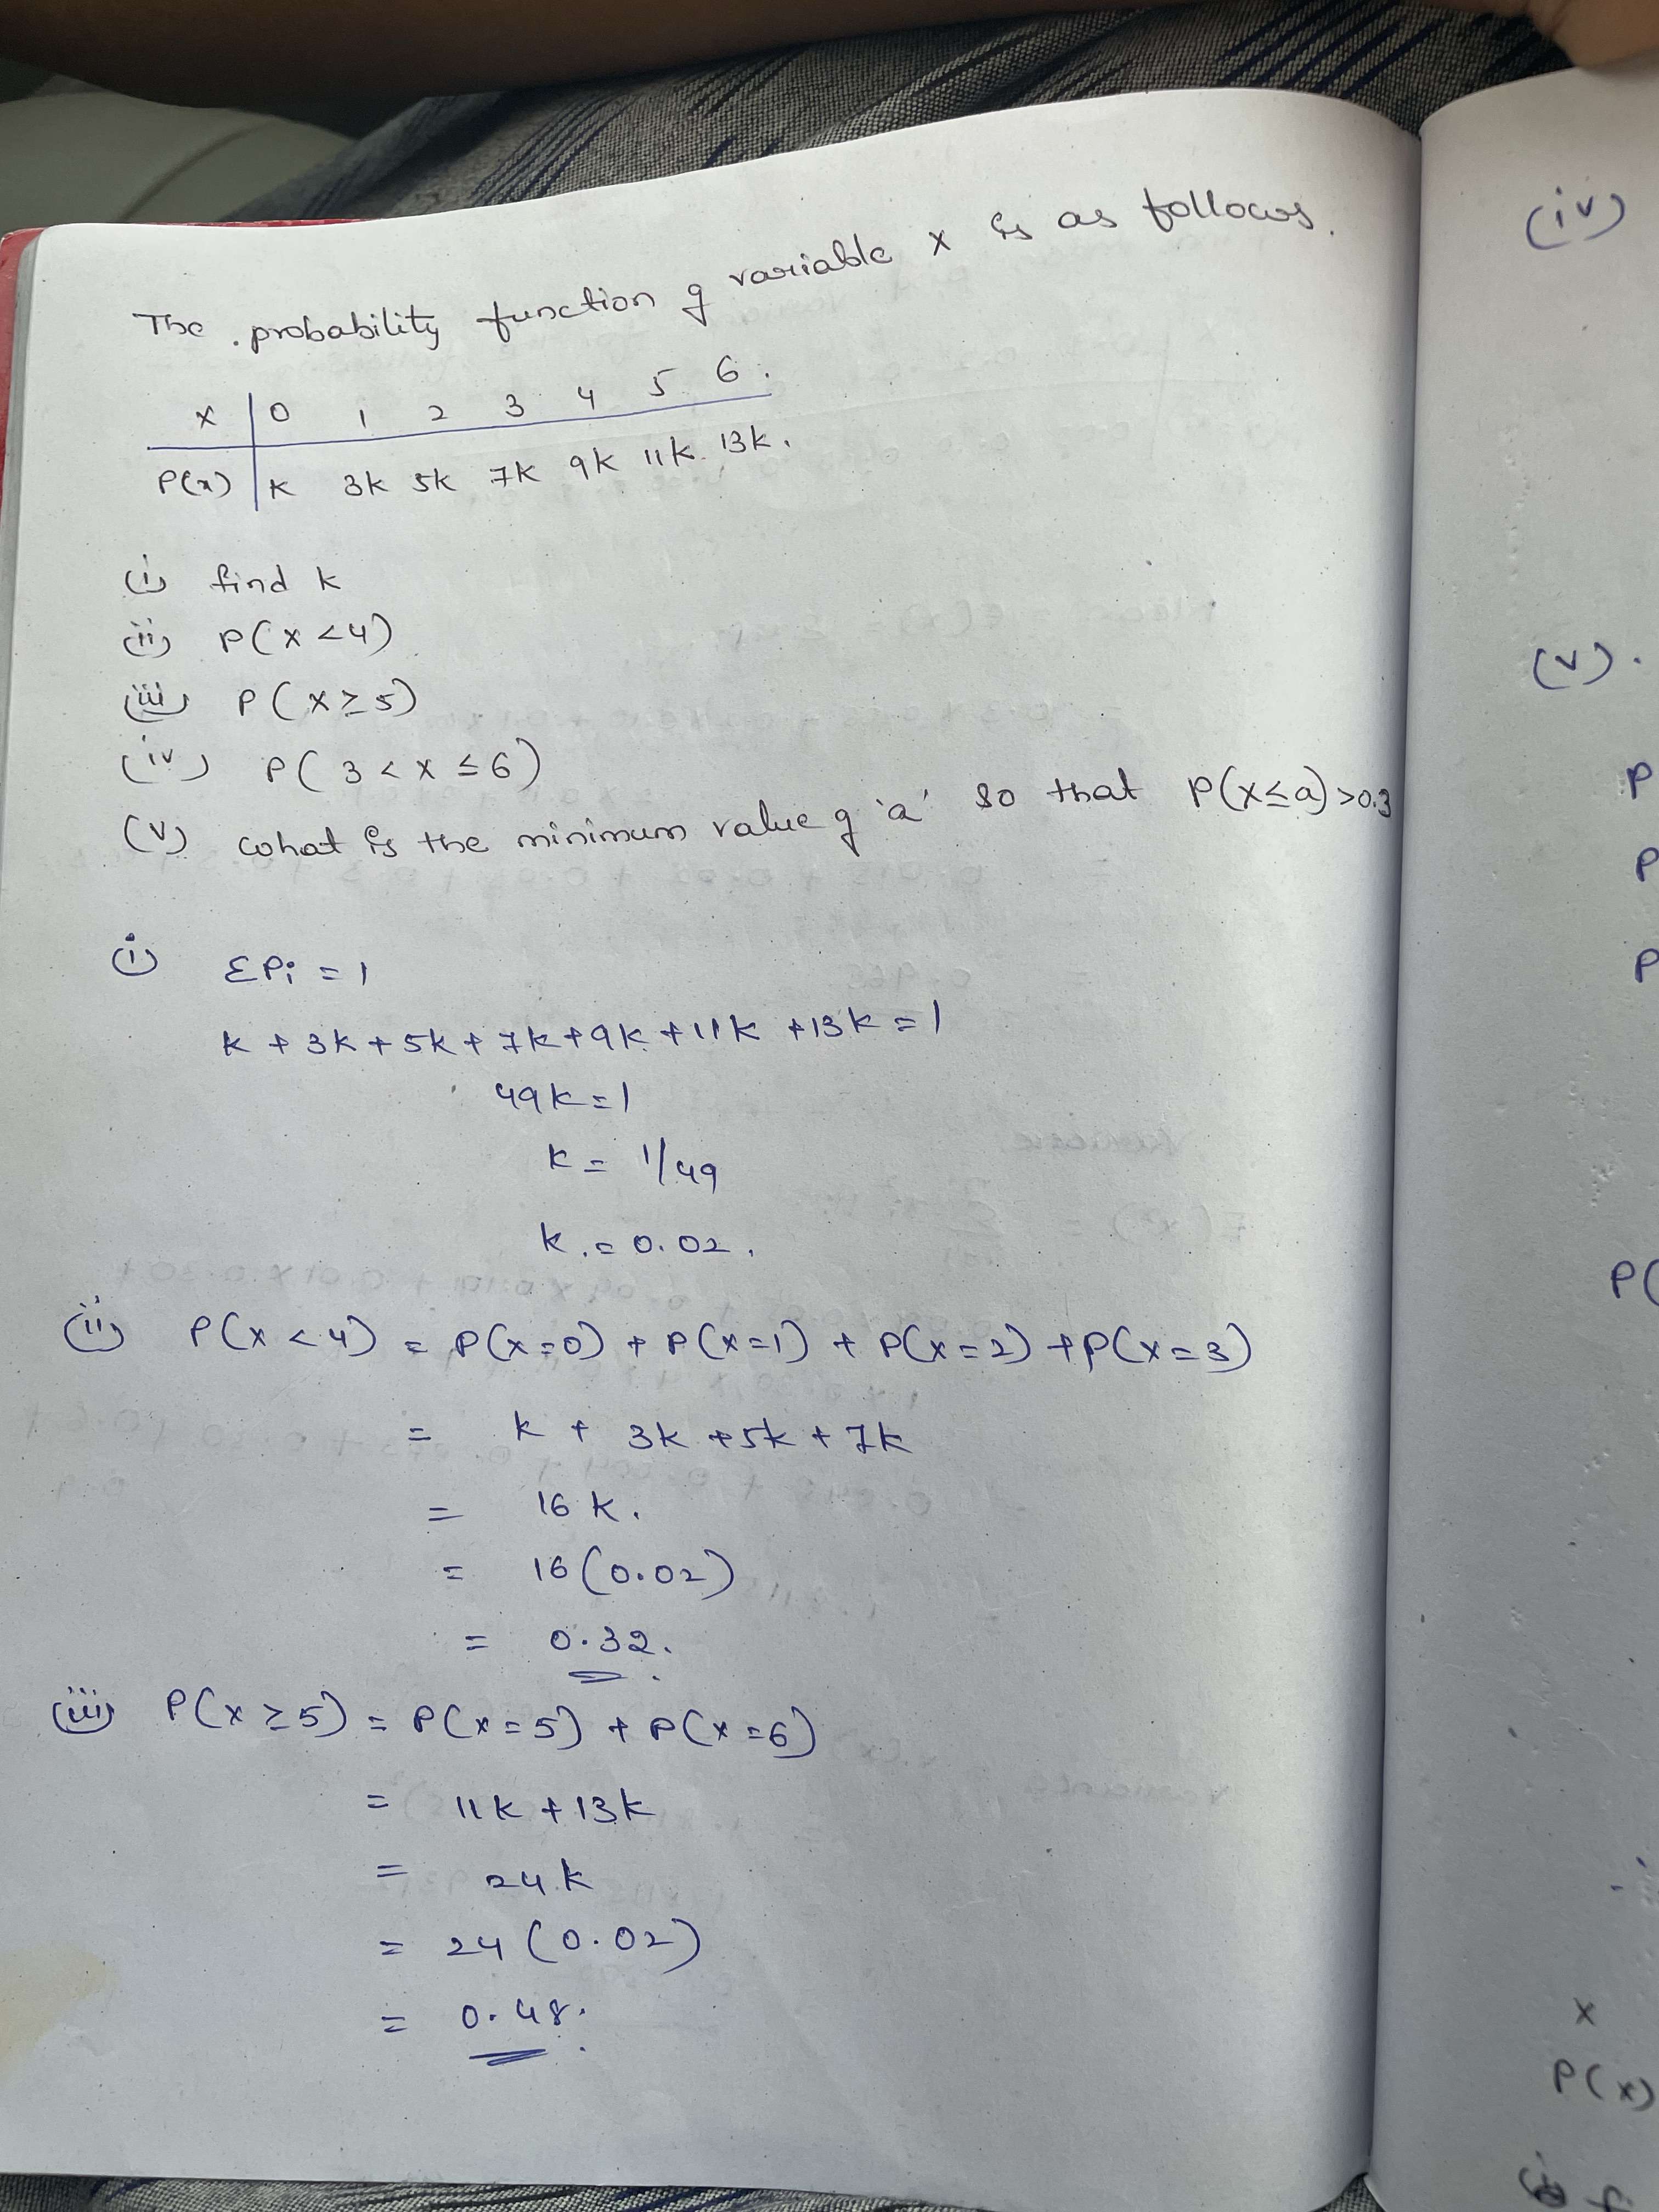 The probability function of variable x is as follows.
x | 0 1 2 3 4 5 6.
P(x) | K 3K 5K 7K 9K 11K 13K.
(i) find k
(ii) P(x<4)
(iii) P(x≥5)
(iv) P(3<x≤6)
(v) what is the minimum value of 'a' so that P(x≤a)>0.3
(i) ΣPi = 1
k + 3k + 5k + 7k + 9k + 11k + 13k = 1
49k = 1
k = 1/49
k = 0.02.
(ii) P(x<4) = P(x=0) + P(x=1) + P(x=2) + P(x=3)
= k + 3k + 5k + 7k
= 16k.
= 16(0.02)
= 0.32.
(iii) P(x≥5) = P(x=5) + P(x=6)
= 11k + 13k
= 24k
= 24(0.02)
= 0.48.
(iv)
(v).
P
P
P
P(
x
P(x)